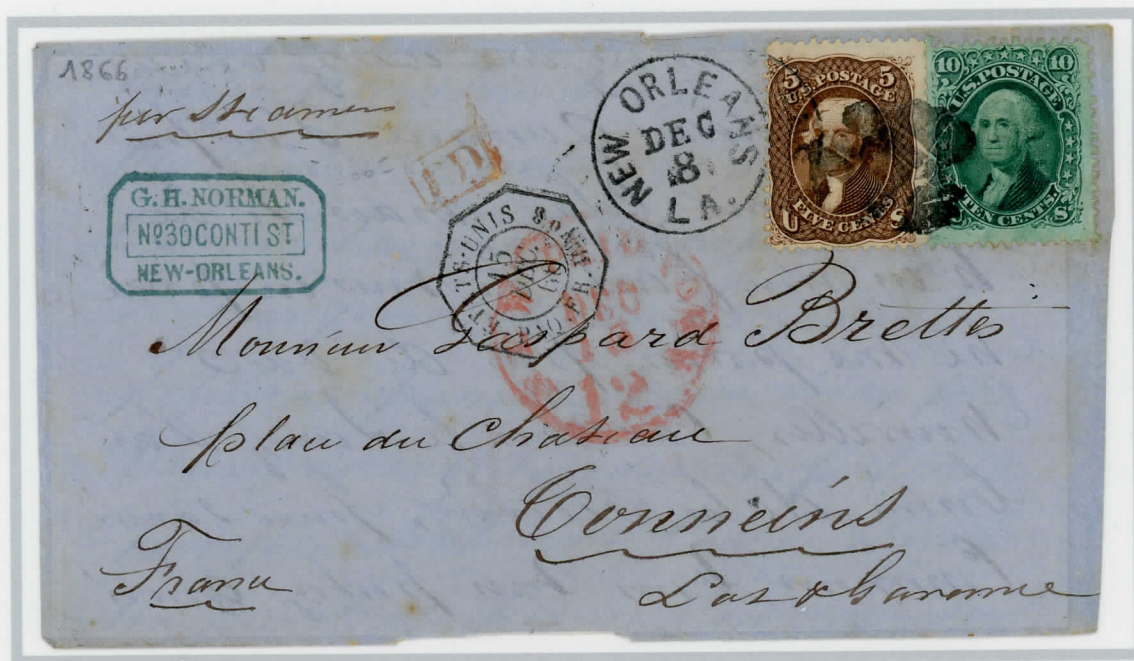 1866
per Steamer
G. H. NORMAN.
Nº 30 CONTI ST
NEW-ORLEANS.
PD
NEW ORLEANS
DEC
8
LA.
5 5
U.S. POSTAGE
U FIVE CENTS S
10 10
U.S. POSTAGE
U TEN CENTS. S
ETATS-UNIS
PAQ. FR.
15
DEC.
66
DEC
12
Monsieur Gaspard Brettes
place du Chateau
Tonneins
Lot & Garonne
France